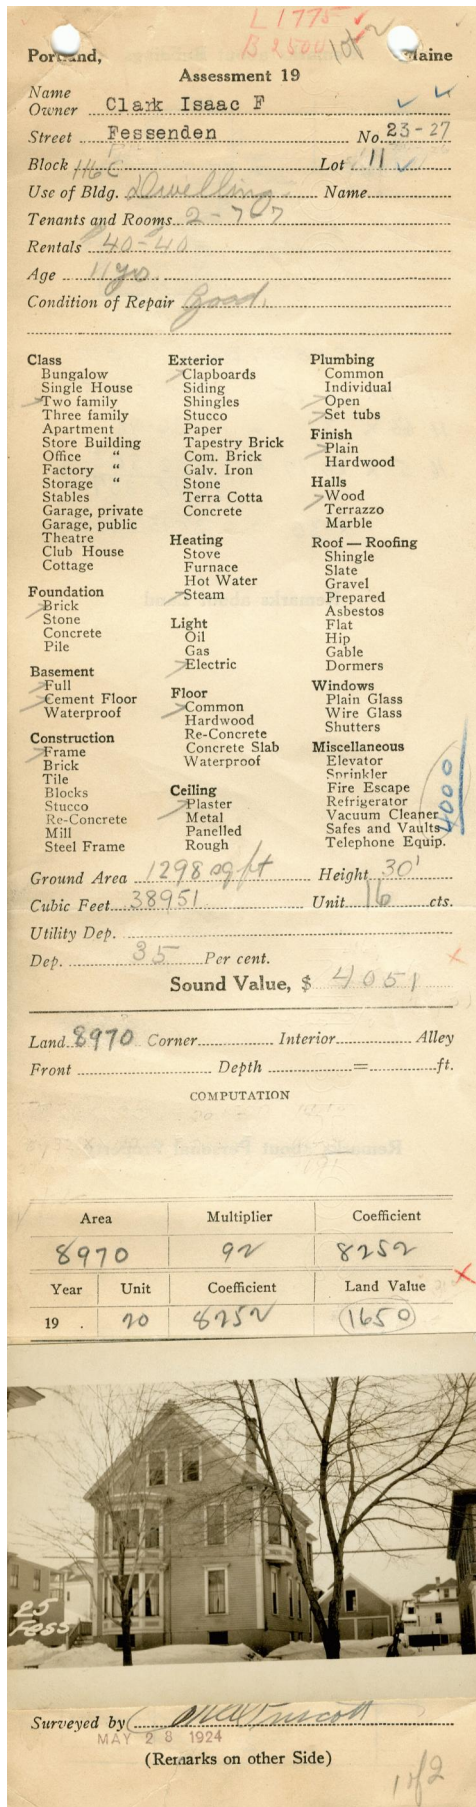 L 1775
B 2500 1 of 2
Portland, Maine
Assessment 19
Name
Owner Clark Isaac F
Street Fessenden No. 23-27
Block 116C Lot 11
Use of Bldg. Dwelling Name
Tenants and Rooms 2-7 07
Rentals 40-40
Age 11 yo
Condition of Repair Good.
Class
Bungalow
Single House
Two family
Three family
Apartment
Store Building
Office "
Factory "
Storage "
Stables
Garage, private
Garage, public
Theatre
Club House
Cottage
Foundation
Brick
Stone
Concrete
Pile
Basement
Full
Cement Floor
Waterproof
Construction
Frame
Brick
Tile
Blocks
Stucco
Re-Concrete
Mill
Steel Frame
Exterior
Clapboards
Siding
Shingles
Stucco
Paper
Tapestry Brick
Com. Brick
Galv. Iron
Stone
Terra Cotta
Concrete
Heating
Stove
Furnace
Hot Water
Steam
Light
Oil
Gas
Electric
Floor
Common
Hardwood
Re-Concrete
Concrete Slab
Waterproof
Ceiling
Plaster
Metal
Panelled
Rough
Plumbing
Common
Individual
Open
Set tubs
Finish
Plain
Hardwood
Halls
Wood
Terrazzo
Marble
Roof — Roofing
Shingle
Slate
Gravel
Prepared
Asbestos
Flat
Hip
Gable
Dormers
Windows
Plain Glass
Wire Glass
Shutters
Miscellaneous
Elevator
Sprinkler
Fire Escape
Refrigerator
Vacuum Cleaner
Safes and Vaults
Telephone Equip.
4000
Ground Area 1298 sq ft Height 30'
Cubic Feet 38951 Unit 16 cts.
Utility Dep.
Dep. 35 Per cent.
Sound Value, $ 4051
Land 8970 Corner Interior Alley
Front Depth = ft.
COMPUTATION
Area Multiplier Coefficient
8970 92 8252
Year Unit Coefficient Land Value
19 . 20 8252 1650
25
Fess
Surveyed by
MAY 28 1924
(Remarks on other Side)
1 of 2